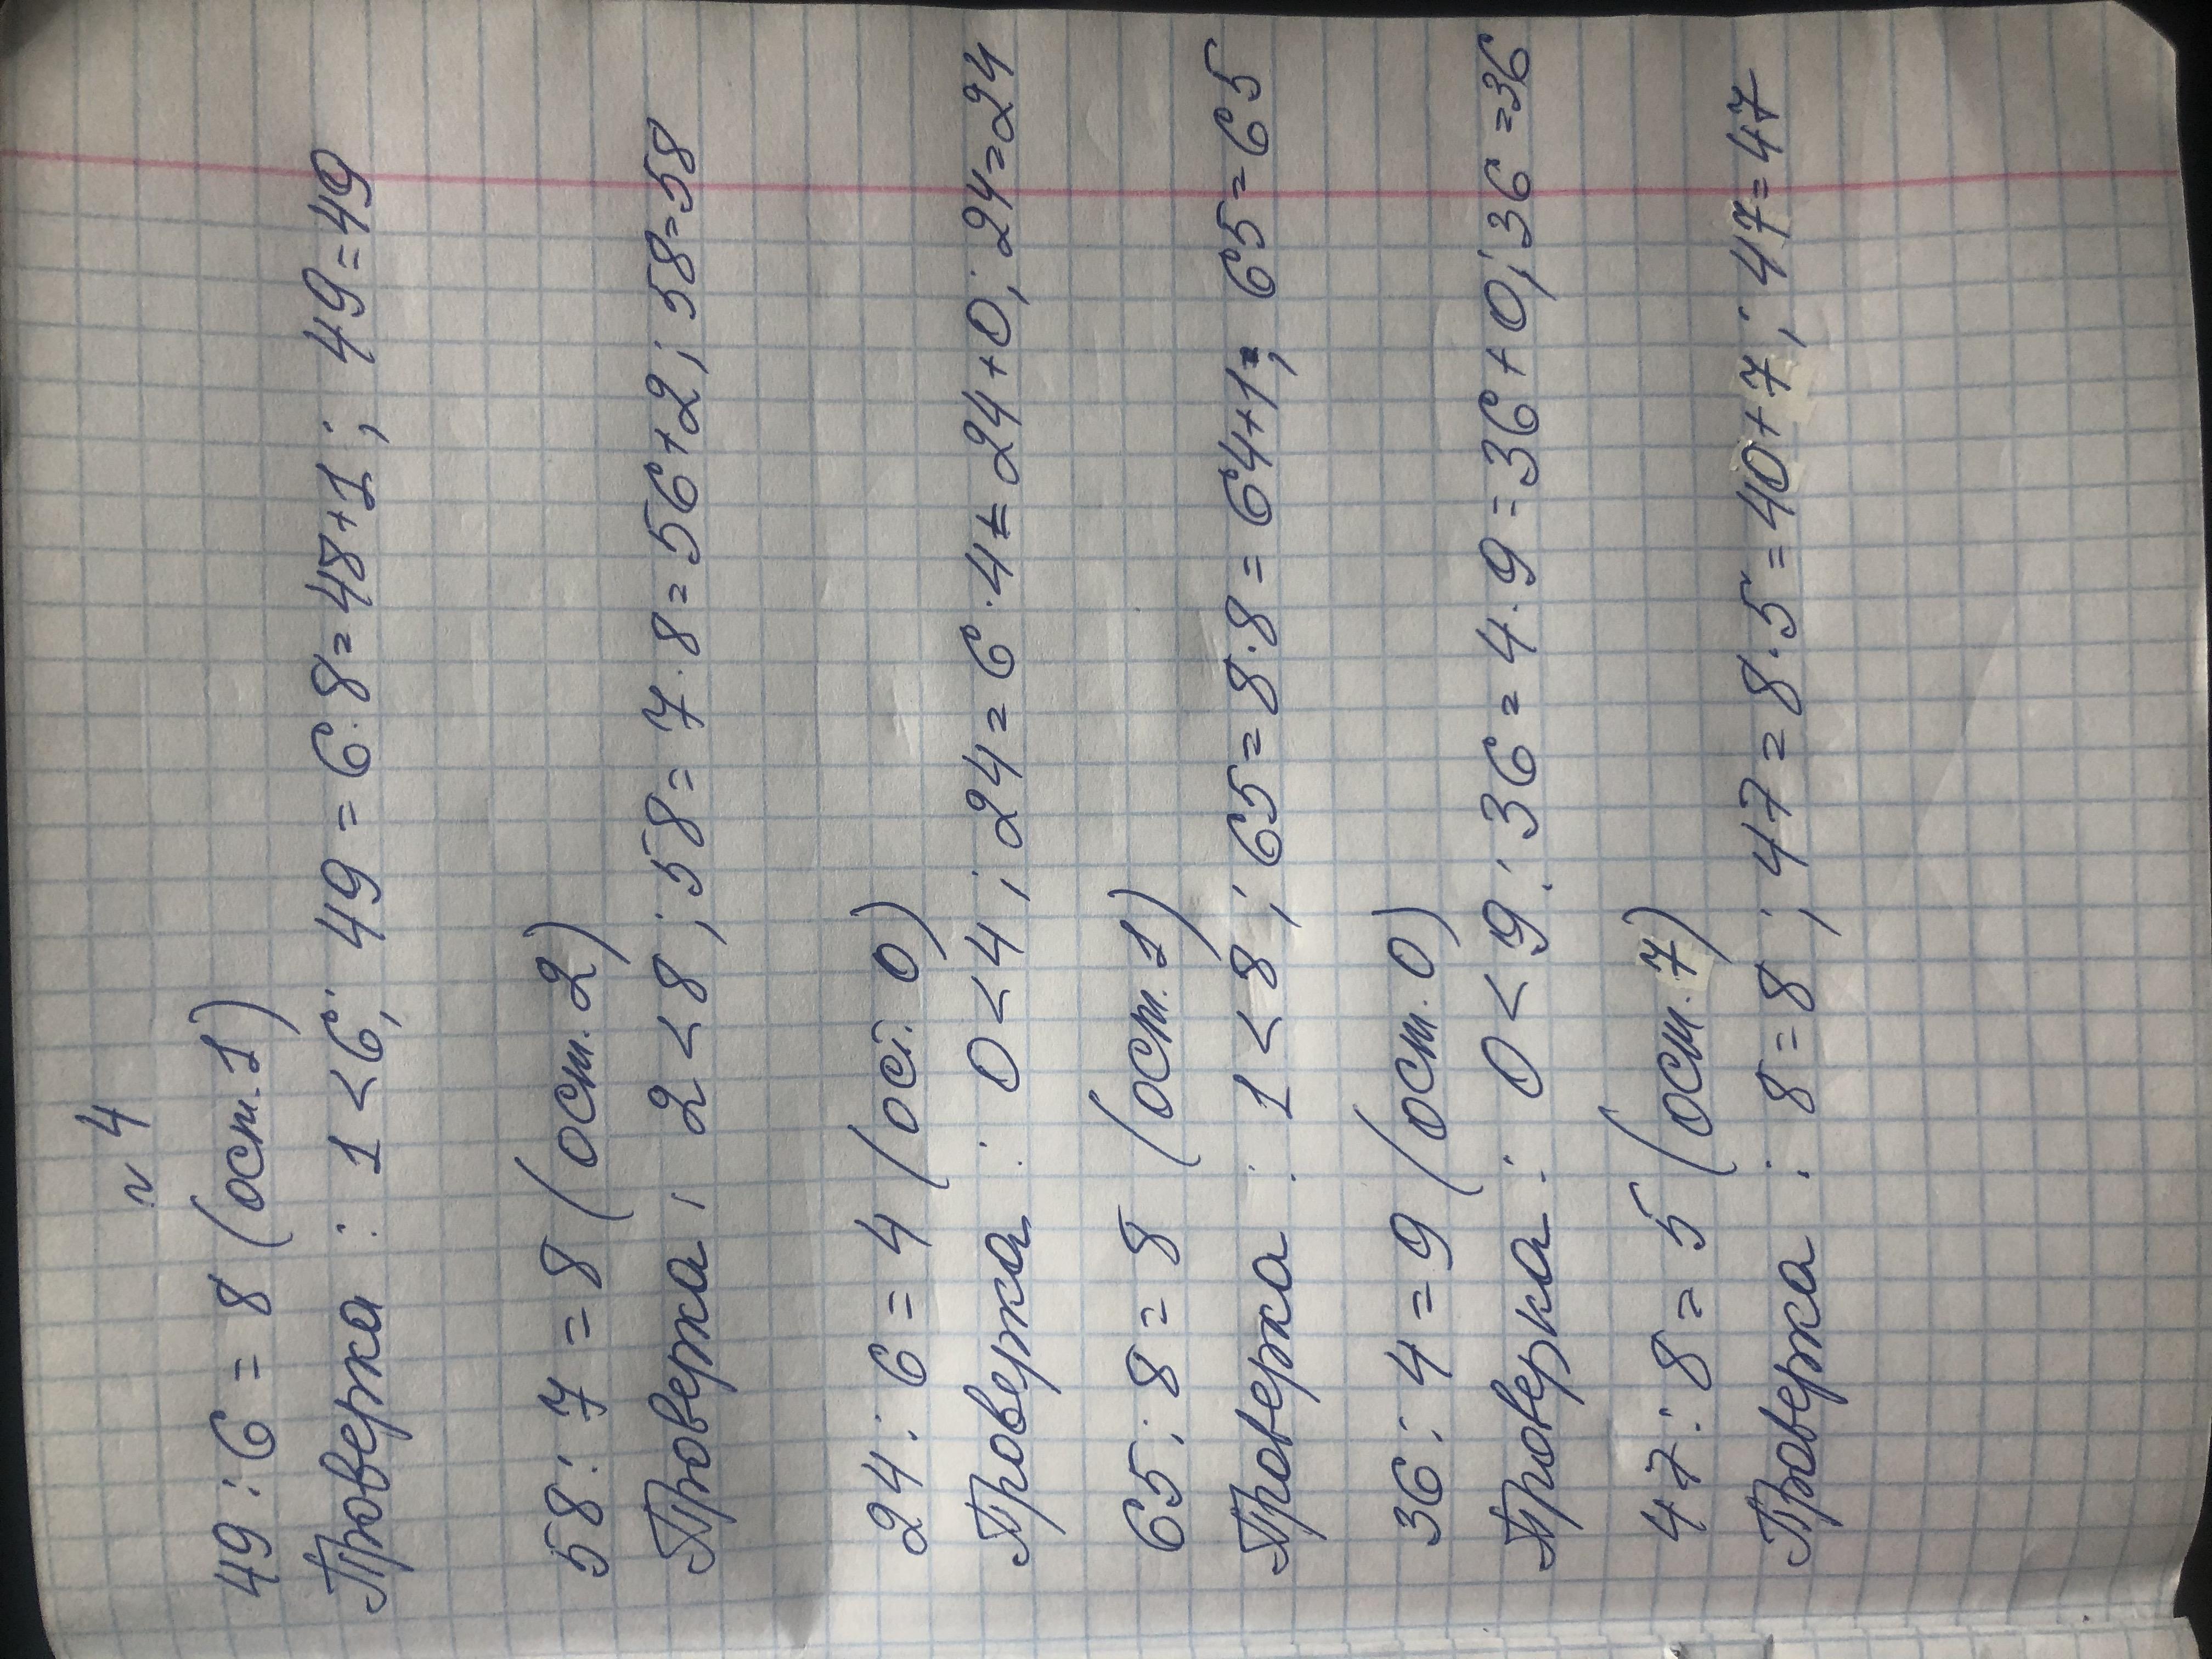 № 4
49 : 6 = 8 (ост. 1)
Проверка : 1 < 6; 49 = 6 · 8 = 48 + 1 ; 49 = 49
58 : 7 = 8 (ост. 2)
Проверка ; 2 < 8 ; 58 = 7 · 8 = 56 + 2 ; 58 = 58
24 : 6 = 4 (ост. 0)
Проверка : 0 < 4 ; 24 = 6 · 4 = 24 + 0 ; 24 = 24
65 : 8 = 8 (ост. 1)
Проверка : 1 < 8 ; 65 = 8 · 8 = 64 + 1 ; 65 = 65
36 : 4 = 9 (ост. 0)
Проверка : 0 < 9 ; 36 = 4 · 9 = 36 + 0 ; 36 = 36
47 : 8 = 5 (ост. 7)
Проверка : 8 = 8 ; 47 = 8 · 5 = 40 + 7 ; 47 = 47